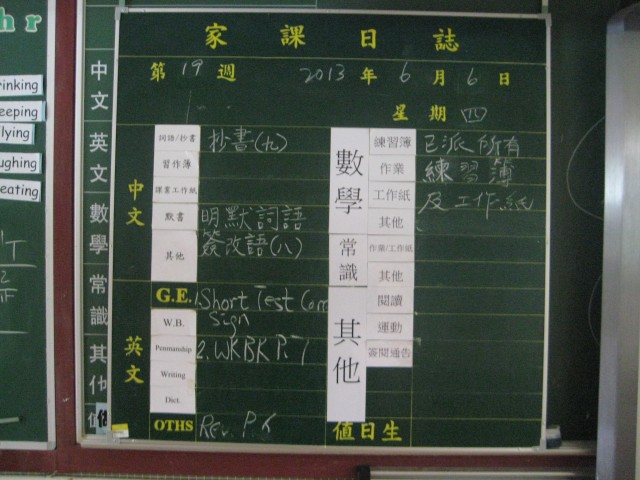 家課日誌
第 19 週 2013 年 6 月 6 日
星期 四
中文
詞語/抄書 抄書(九)
習作簿
課業工作紙
默書 明默詞語
其他 簽改語(八)
英文
G.E. 1.Short Test Corr
Sign
W.B.
Penmanship 2.WKBK P.7
Writing
Dict.
OTHS Rev. P.
數學
練習簿 已派所有
作業 練習簿
工作紙 及工作紙
其他
常識
作業/工作紙
其他
其他
閱讀
運動
簽閱通告
值日生
中文
英文
數學
常識
其他
hr
inking
eeping
lying
ughing
eating